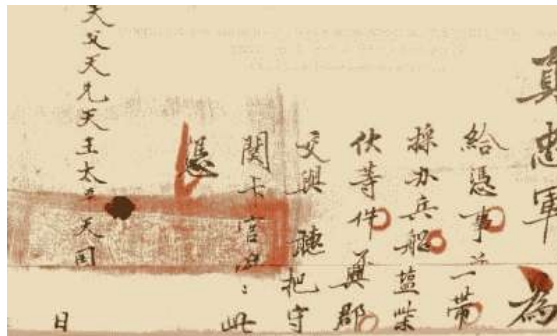 真忠軍 為
給憑事茲帶
採办兵船塩柴
伙等件
交與 聽把守
関卡官 此
憑
天父天兄天王太平天国
日